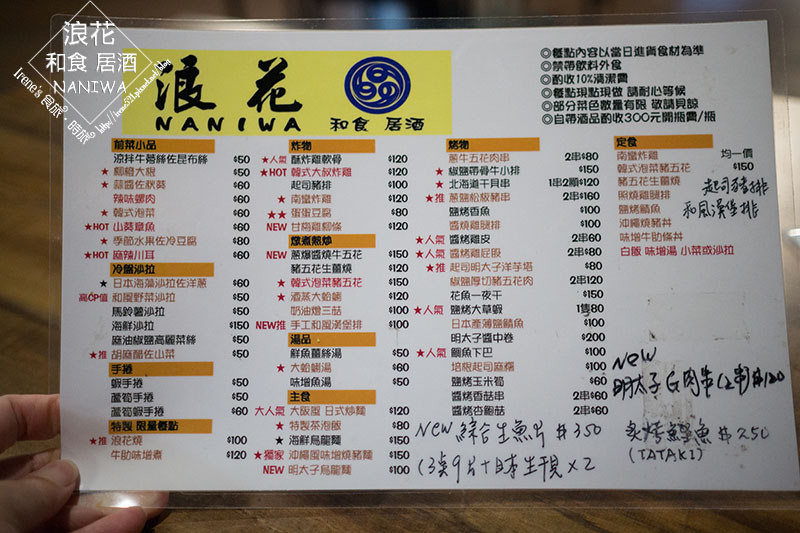 浪花
和食 居酒
NANIWA
Irene's 食旅．時旅
浪花
NANIWA 和食 居酒
◎餐點內容以當日進貨食材為準
◎禁帶飲料外食
◎酌收10%清潔費
◎餐點現點現做 請耐心等候
◎部分菜色數量有限 敬請見諒
◎自帶酒品酌收300元開瓶費/瓶
前菜小品
涼拌牛蒡絲佐昆布絲 $50
★ 柳橙大根 $50
★ 蒜醬佐秋葵 $60
辣味螺肉 $60
★ 韓式泡菜 $60
★HOT 山葵章魚 $60
★ 季節水果佐冷豆腐 $80
★HOT 麻辣川耳 $60
冷盤沙拉
★ 日本海藻沙拉佐洋蔥 $60
高CP值 和風野菜沙拉 $60
馬鈴薯沙拉 $50
海鮮沙拉 $150
麻油椒鹽高麗菜絲 $50
★推 胡麻醋佐小菜 $50
手捲
蝦手捲 $50
蘆筍手捲 $50
蘆筍蝦手捲 $60
特製 限量餐點
★推 浪花燒 $100
牛肋味增煮 $120
炸物
★人氣 酥炸雞軟骨 $120
★HOT 韓式大叔炸雞 $120
起司豬排 $100
★ 南蠻炸雞 $120
★★ 蛋蛋豆腐 $80
NEW 甘薯雞柳條 $120
燉煮煎炒
NEW 蔥爆醬燒牛五花 $120
豬五花生薑燒 $120
★ 韓式泡菜豬五花 $120
★ 酒蒸大蛤蜊 $120
奶油燴三菇 $100
NEW推 手工和風漢堡排 $100
湯品
鮮魚薑絲湯 $50
★ 大蛤蜊湯 $60
味增魚湯 $50
主食
大人氣 大阪風 日式炒麵 $120
★ 特製茶泡飯 $80
★ 海鮮烏龍麵 $100
★獨家 沖繩風味增燒豬麵 $150
NEW 明太子烏龍麵 $100
烤物
蔥牛五花肉串 2串$80
★ 椒鹽帶骨牛小排 $150
★ 北海道干貝串 1串2顆$120
★推 蔥鹽松板豬串 2串$160
鹽烤香魚 $100
醬燒雞腿排 $100
★人氣 醬烤雞皮 2串$60
★人氣 醬烤雞屁股 2串$80
★推 起司明太子洋芋塔 $80
椒鹽厚切豬五花肉 2串$120
花魚一夜干 $150
★人氣 鹽烤大草蝦 1隻$80
日本產薄鹽鯖魚 $100
明太子醬中卷 $200
★人氣 鯛魚下巴 $100
培根起司麻糬 $100
鹽烤玉米筍 $60
醬烤香菇串 2串$60
醬烤杏鮑菇 2串$60
定食
均一價
$150
南蠻炸雞
韓式泡菜豬五花
豬五花生薑燒
照燒雞腿排
鹽烤鯖魚
沖繩燒豬丼
味增牛肋條丼
白飯 味增湯 小菜或沙拉
起司豬排
和風漢堡排
NEW
明太子雞肉串(2串)$120
NEW 綜合生魚片 $350
(3桌9片+日本生現×2
炙烤鰹魚 $250
(TATAKI)